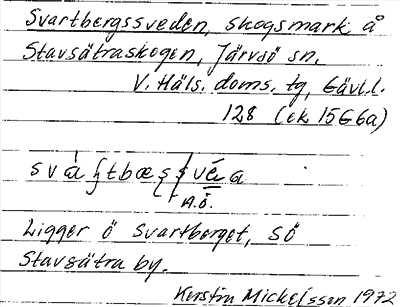 Svartbergssveden, skogsmark å
Stavsätraskogen, Järvsö sn,
V. Häls. doms. tg, Gävl.l.
128 (ek 15G6a)
Ligger ö Svartberget, sö
Stavsätra by.
Kerstin Mickelsson 1972